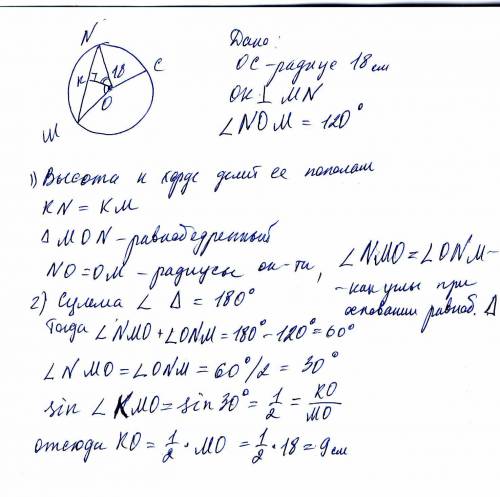 N
C
K
18
O
M
Дано:
OC - радиус 18 см
OK ⊥ MN
∠NOM = 120°
1) Высота к хорде делит ее пополам
KN = KM
Δ MON - равнобедренный
NO = OM - радиусы ок-ти, ∠NMO = ∠ONM -
- как углы при
основании равноб. Δ
2) Сумма ∠ Δ = 180°
Тогда ∠NMO + ∠ONM = 180° - 120° = 60°
∠NMO = ∠ONM = 60°/2 = 30°
sin ∠KMO = sin 30° = 1/2 = KO/MO
отсюда KO = 1/2 · MO = 1/2 · 18 = 9 см